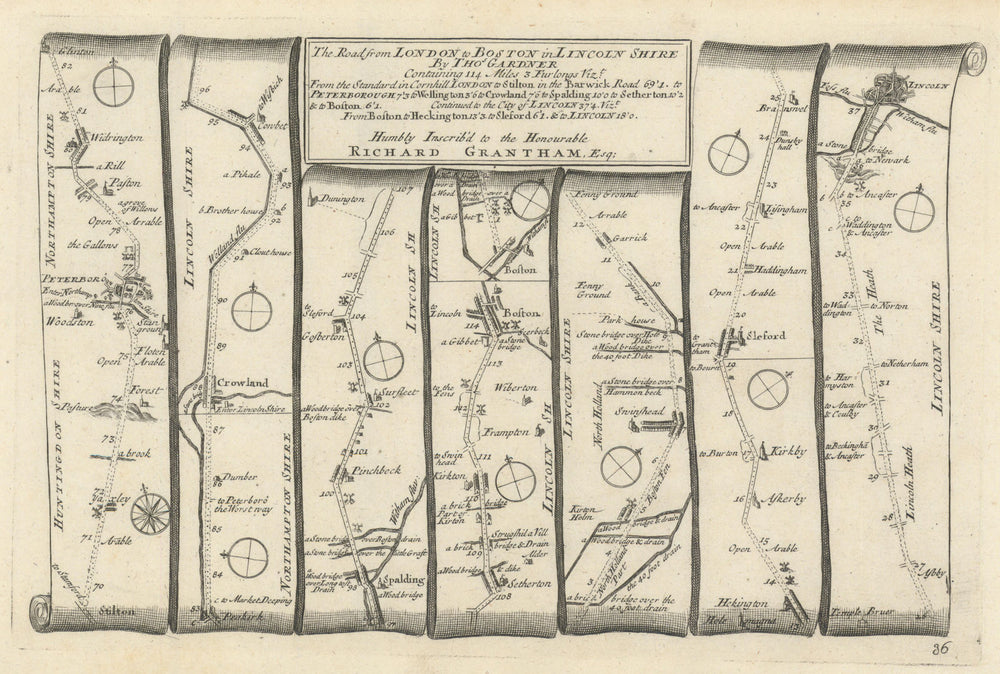 The Road from LONDON to BOSTON in LINCOLN SHIRE
By Tho.s GARDNER
Containing 114 Miles 3 Furlongs Viz.t
From the Standard in Cornhill LONDON to Stilton in the Barwick Road 69'1. to
PETERBOROUGH 7'3 to Wellington 3'6 to Crowland 7'6 to Spalding 10'0 to Setherton 10'2
& to Boston 6'1. Continued to the City of LINCOLN 37.4. Viz.t
From Boston to Heckington 13'3 to Sleford 6'1. & to LINCOLN 18'0.
Humbly Inscrib'd to the Honourable
RICHARD GRANTHAM, Esq;
Glinton
82
Arable
81
Widrington
a Rill
Paston
a grove of Willows
Open Arrable
78
the Gallows
PETERBORO
Enter Northamp
Woodston
Stan ground
Floten
Open 75 Arable
Forest
Pasture
74
73
a brook
72
Yaxley
71
Arable
70
to Stamford
Stilton
NORTHAMPTON SHIRE
HUNTINGDON SHIRE
96
95
to Wisbich
Cowbet
94
a Pikale
93
b. Brother house
92
Welland flu
Clout house
91
90
89
88
Crowland
Enter Lincoln Shire
87
86
Dumber
to Peterboro the Worst way
85
84
c to Market Deeping
83
Peakirk
LINCOLN SHIRE
NORTHAMPTON SHIRE
107
Dunington
106
105
to Sleford
104
Gosberton
103
Surfleet
102
a Wood bridge over Boston dike
101
Pinchbeck
100
Witham flu
a Stone bridge over Boston drain
a Stone bridge over the little Graft
a Wood bridge over Long Drain
98
Spalding
a Wood bridge
LINCOLN SH
LINCOLN SH
a Wood bridge
Drain
a Gibbet
Boston
to Lincoln
Boston
114
a Stone bridge
a Gibbet
113
Wiberton
to the Fens
112
Frampton
111
to Swin head
Kirkton
110
bridge
a brick Part of Kirton
109
Strugshil a Vill
a brick
bridge & Drain
Alder
a Wood bridge & dike
Setherton
108
LINCOLN SH
Fenny Ground
Arrable
12
Garrick
11
Fenny Ground
10
Park house
Stone bridge over Holt Dike
a Wood bridge over the 40 foot Dike
a Stone bridge over Hammon beck
Swinshead
North Holland
Kirton Holm
a Wood bridge & drain
a Wood bridge & drain
North Holland Part
the 40 foot drain
a brick bridge over the 40 foot drain
LINCOLN SHIRE
25
Bransnel
24
Dunsby hall
23
to Ancaster
Lisingham
22
Open Arable
21
Haddingham
Open Arable
20
Sleford
to Grantham
to Bourn
19
18
to Burton
Kirkby
16
Askerby
Open
15
Arable
14
Hekington
Hole
LINCOLN
Foss flu
Witham flu
37
a Stone bridge
to Newark
b to Ancaster
35
c to Waddington & Ancaster
The Heath
to Waddington
to Norton
32
to Netherham
to Harmyeston
31
to Ancaster & Coulby
30
to Beckingham & Ancaster
29
Lincoln Heath
28
27
Ashby
Temple Bruer
26
LINCOLN SHIRE
36